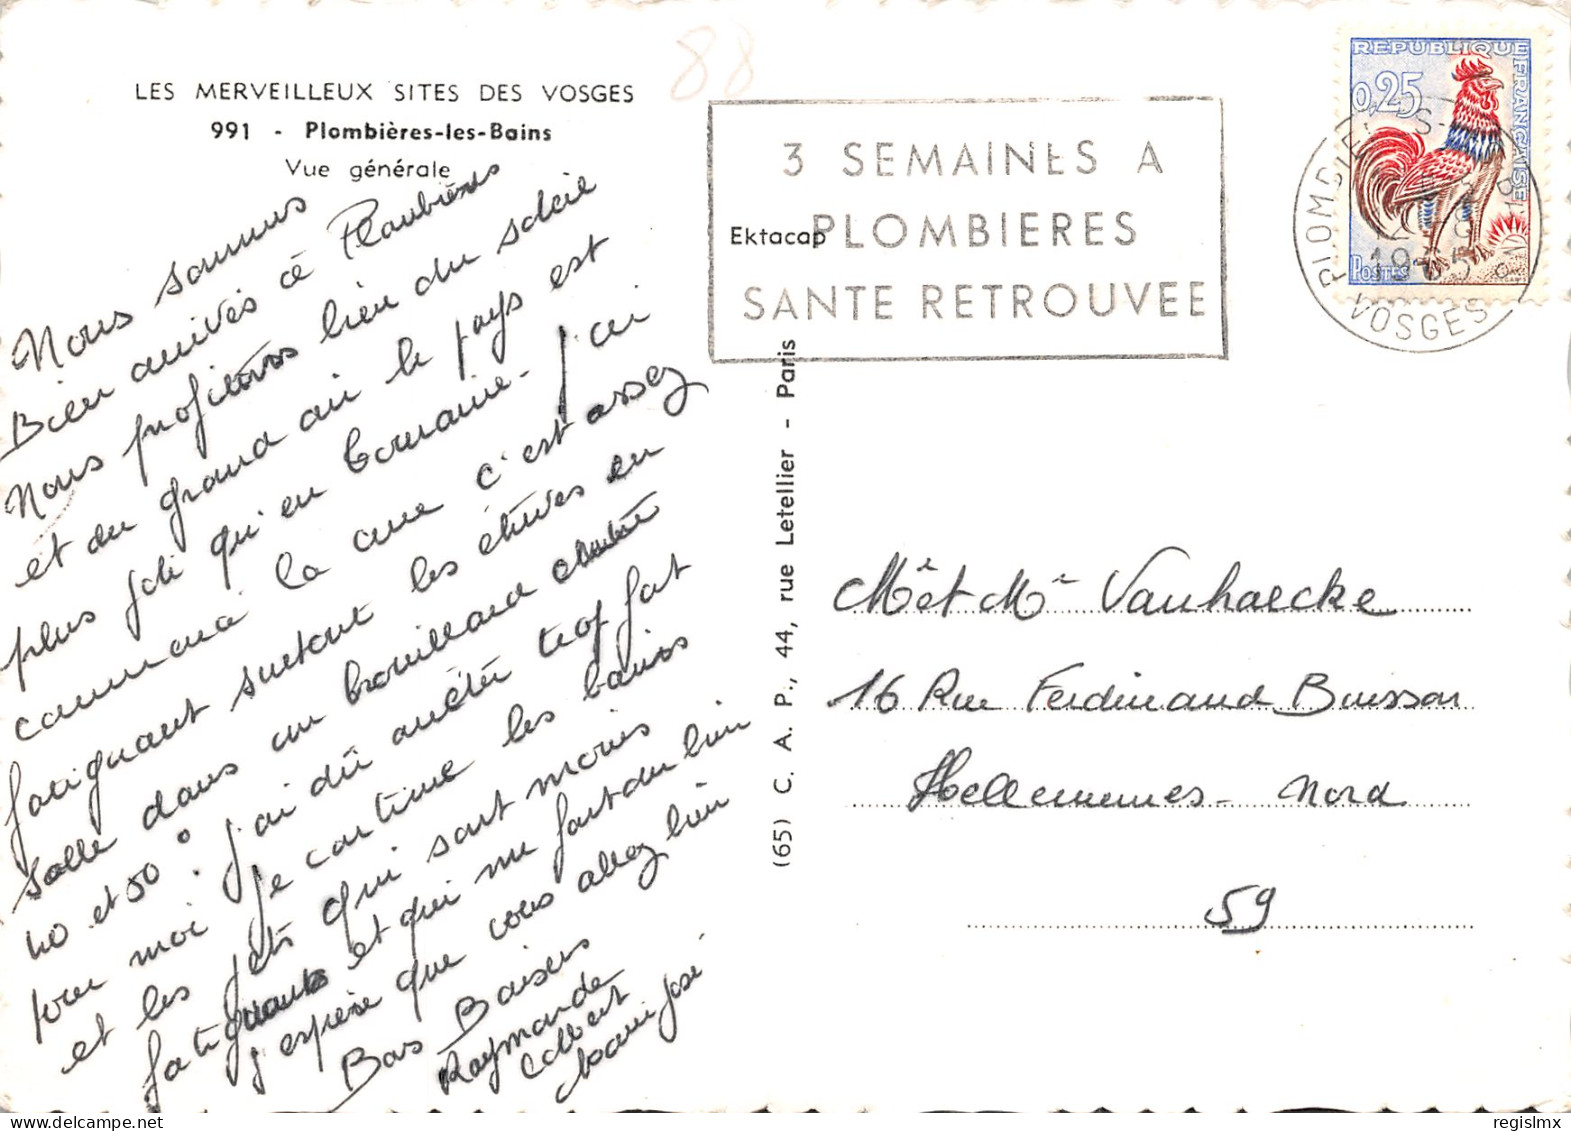 88
LES MERVEILLEUX SITES DES VOSGES
991 - Plombières-les-Bains
Vue générale
Nous sommes
Bien arrivés à Plombières
Nous profitons bien du soleil
et du grand air le pays est
plus joli qu'en Lorraine - j'ai
commencé la cure c'est assez
fatiguant surtout les étuves en
salle dans un brouillard
40 et 50°. j'ai dû arrêter trop fort
pour moi je continue les bains
et les jets qui sont moins
fatiguants et qui me font du bien
j'espère que vous allez bien
Bons Baisers
Raymonde
Albert
Marie José
3 SEMAINES A
PLOMBIERES
SANTE RETROUVEE
Ektacap
REPUBLIQUE FRANÇAISE
0,25
POSTES
PLOMBIERES-LES-B
1965
VOSGES
(65) C. A. P., 44, rue Letellier - Paris
Mē et Mr Vanhaecke
16 Rue Ferdinand Buisson
Hellemmes - Nord
59
regislmx
delcampe.net